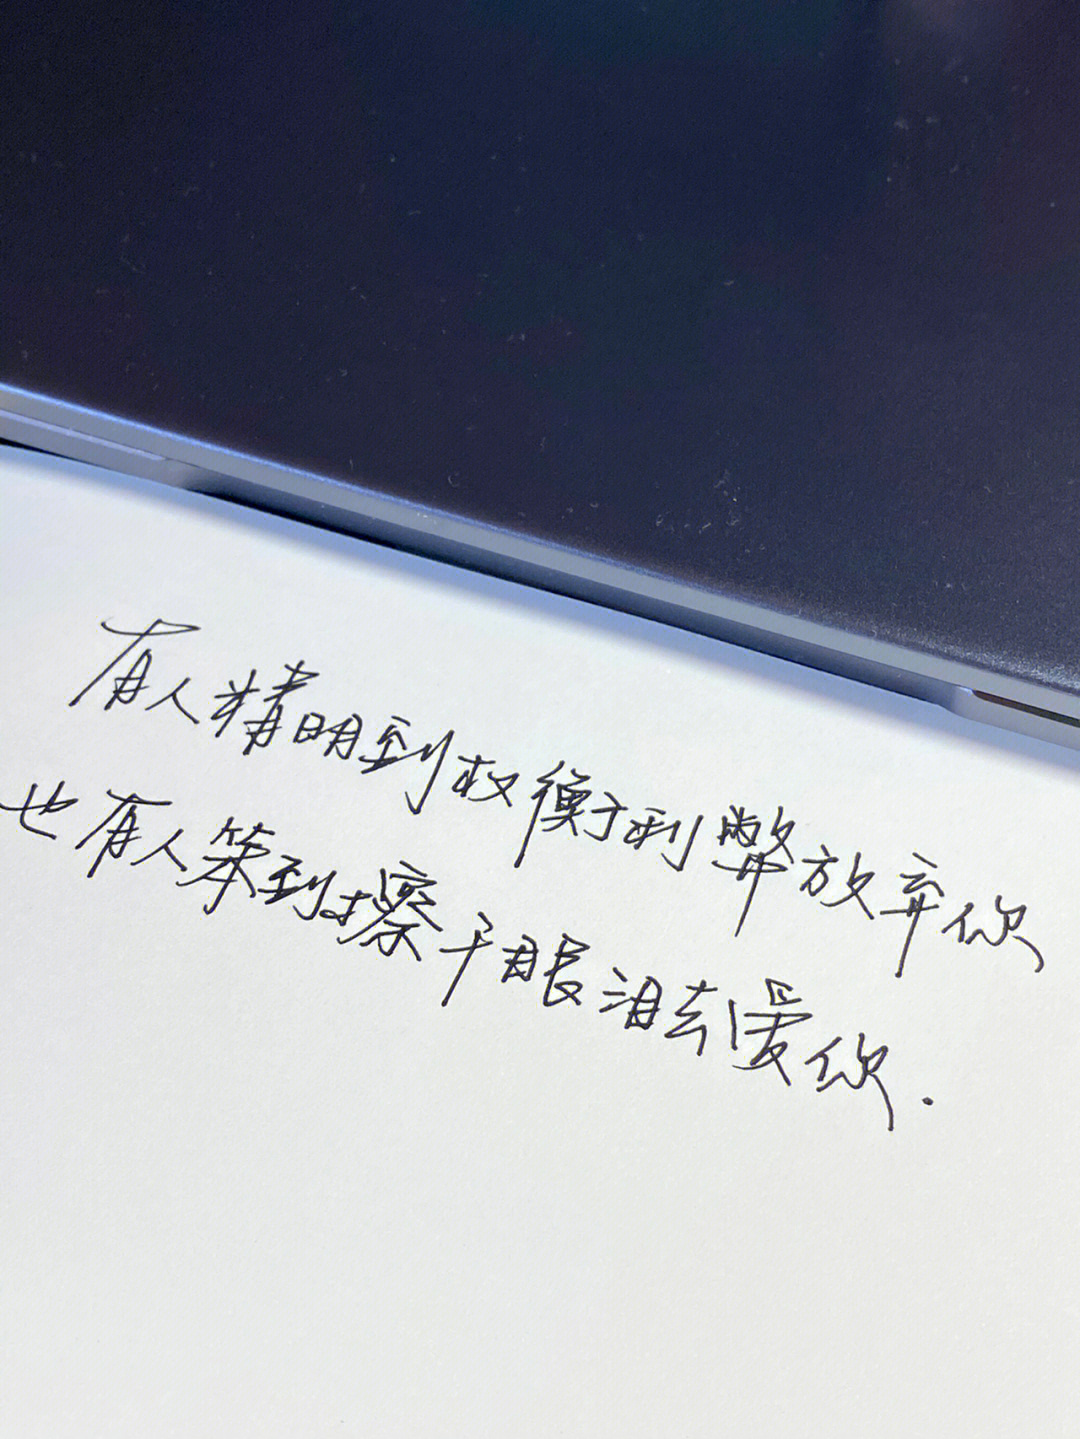 有人精明到权衡利弊放弃你
也有人笨到擦干眼泪去爱你.